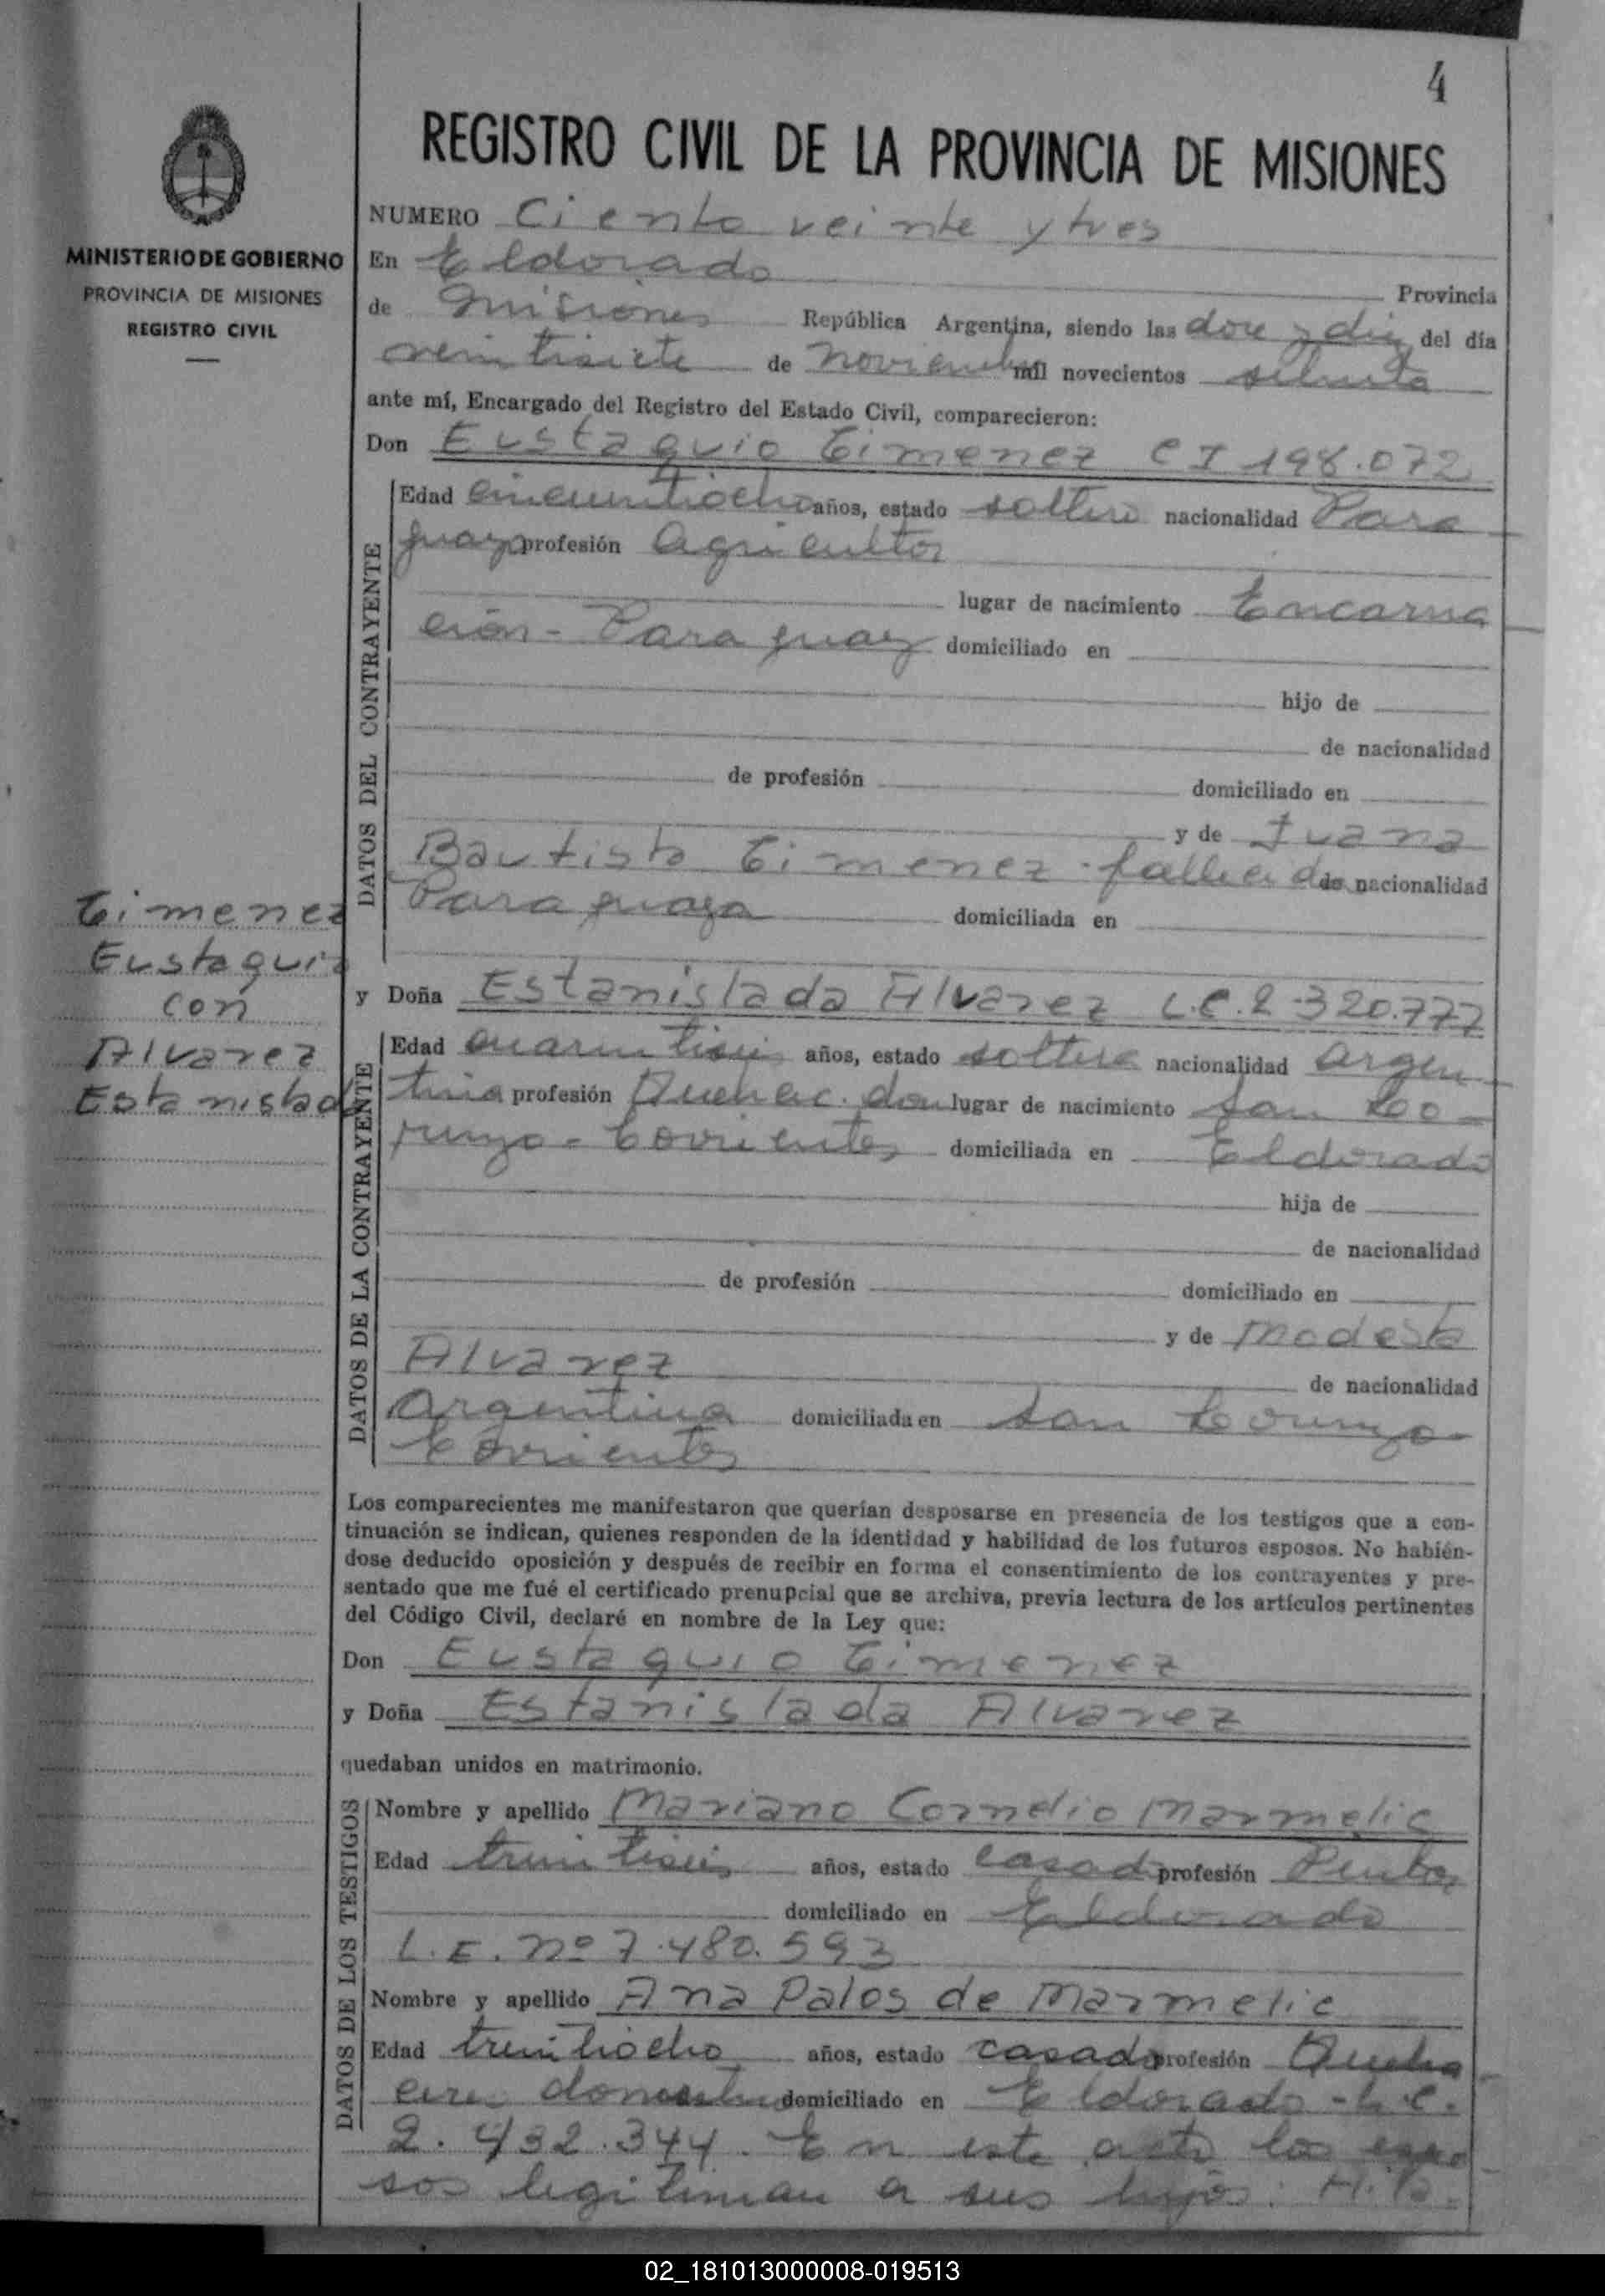 4
REGISTRO CIVIL DE LA PROVINCIA DE MISIONES
MINISTERIO DE GOBIERNO
PROVINCIA DE MISIONES
REGISTRO CIVIL
NUMERO Ciento veinte y tres
En Eldorado Provincia
de Misiones República Argentina, siendo las doce y diez del día
veintisiete de noviembre mil novecientos setenta
ante mí, Encargado del Registro del Estado Civil, comparecieron:
Don Eustaquio Gimenez C I 198.072
DATOS DEL CONTRAYENTE
Edad cincuentiocho años, estado soltero nacionalidad Para
guaya profesión Agricultor
lugar de nacimiento Encarna
ción - Paraguay domiciliado en
hijo de
de nacionalidad
de profesión domiciliado en
y de Juana
Bautista Gimenez - fallecida de nacionalidad
Paraguaya domiciliada en
Gimenez
Eustaquio
con
Alvarez
Estanislada
y Doña Estanislada Alvarez L.C. 2.320.777
DATOS DE LA CONTRAYENTE
Edad cuarentiseis años, estado soltera nacionalidad argen
tina profesión Quehac. dom lugar de nacimiento San Lo-
renzo - Corrientes domiciliada en Eldorado
hija de
de nacionalidad
de profesión domiciliado en
y de Modesta
Alvarez de nacionalidad
Argentina domiciliada en San Lorenzo
Corrientes
Los comparecientes me manifestaron que querían desposarse en presencia de los testigos que a con-
tinuación se indican, quienes responden de la identidad y habilidad de los futuros esposos. No habién-
dose deducido oposición y después de recibir en forma el consentimiento de los contrayentes y pre-
sentado que me fué el certificado prenupcial que se archiva, previa lectura de los artículos pertinentes
del Código Civil, declaré en nombre de la Ley que:
Don Eustaquio Gimenez
y Doña Estanislada Alvarez
quedaban unidos en matrimonio.
DATOS DE LOS TESTIGOS
Nombre y apellido Mariano Cornelio Marmelic
Edad treintiseis años, estado casado profesión Pintor
domiciliado en Eldorado
L.E. nº 7.480.593
Nombre y apellido Ana Palos de Marmelic
Edad treintiocho años, estado casada profesión Queha
ceres domiciliado en Eldorado - L.C.
2.432.344. En este acto los espo
sos legitiman a sus hijos:
02_181013000008-019513